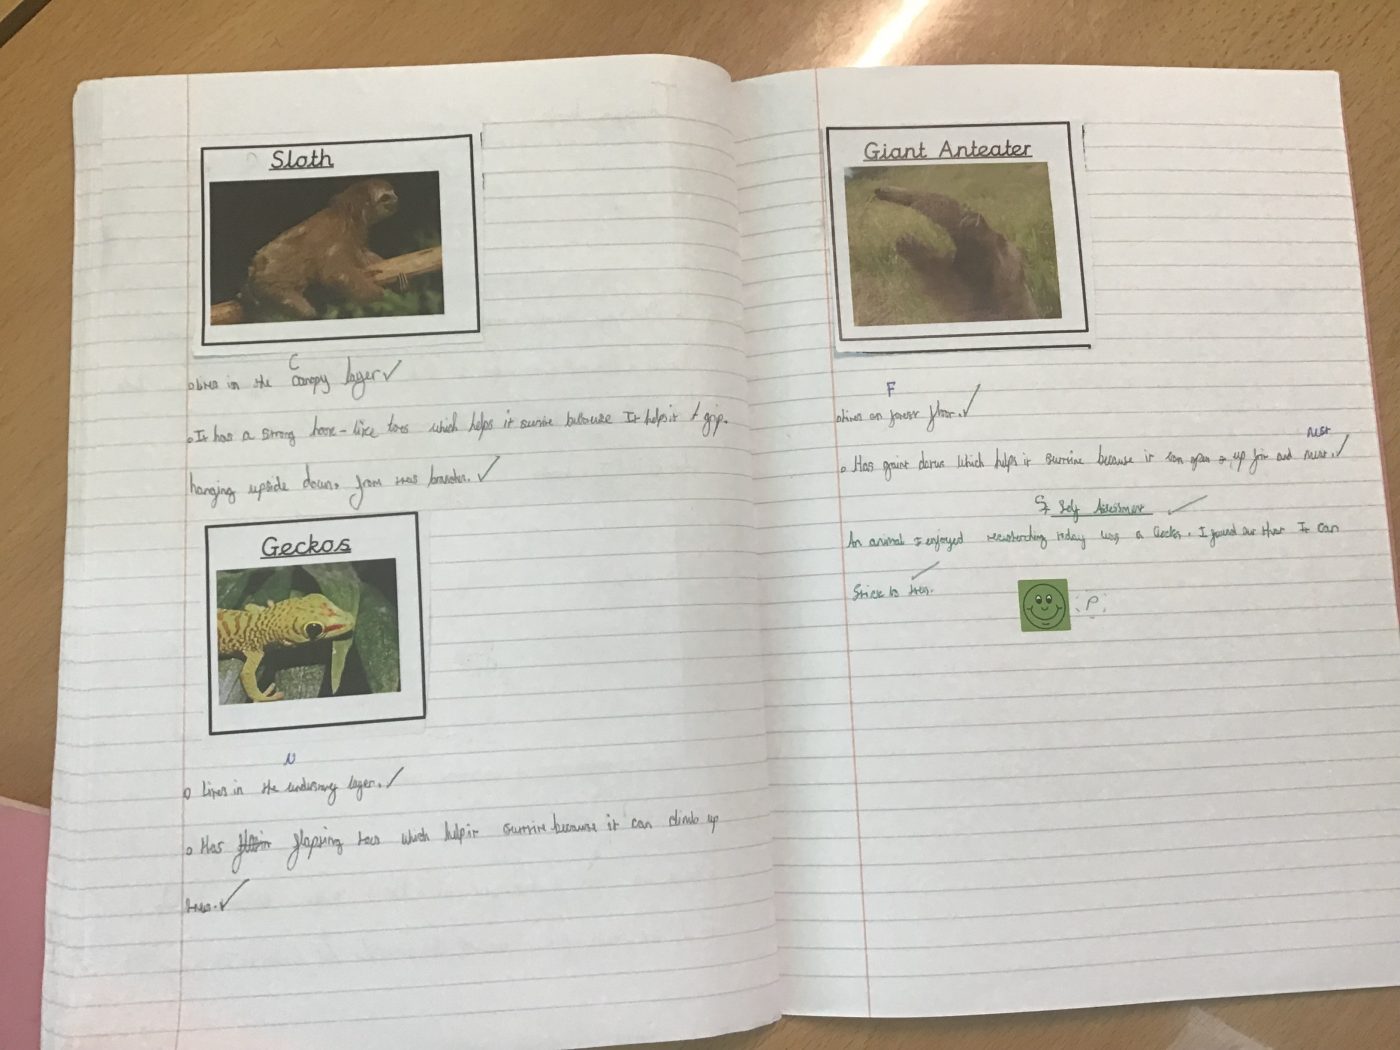 Sloth
C
Lives in the canopy layer
It has a strong hook-like toes which helps it survive because It helps it grip.
hanging upside down. from branches.
Geckos
U
Lives in the layer.
Has toes which help it survive because it can climb up
trees.
Giant Anteater
F
Lives on forest floor.
nest
Has claws which helps it survive because it can open up and
Self Assessment
An animal I enjoyed today was a Gecko. I found out that It can
Stick to trees.